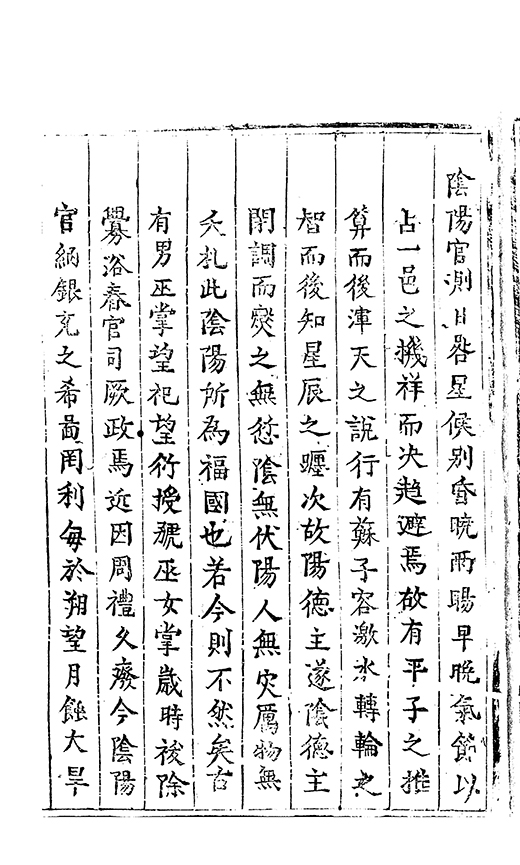 陰陽官測日晷星候別昏曉雨暘早晚氣節以
占一邑之禨祥而决趨避焉故有平子之推
算而後渾天之說行有蘇子容激水轉輪之
智而後知星辰之躔次故陽德主遂陰德主
閉調而燮之無愆陰無伏陽人無灾厲物無
夭札此陰陽所為福國也若今則不然矣古
有男巫掌望祀望衍授號巫女掌歲時祓除
釁浴春官司厥政焉近因周禮久廢今陰陽
官納銀充之希啚罔利每於朔望月蝕大旱